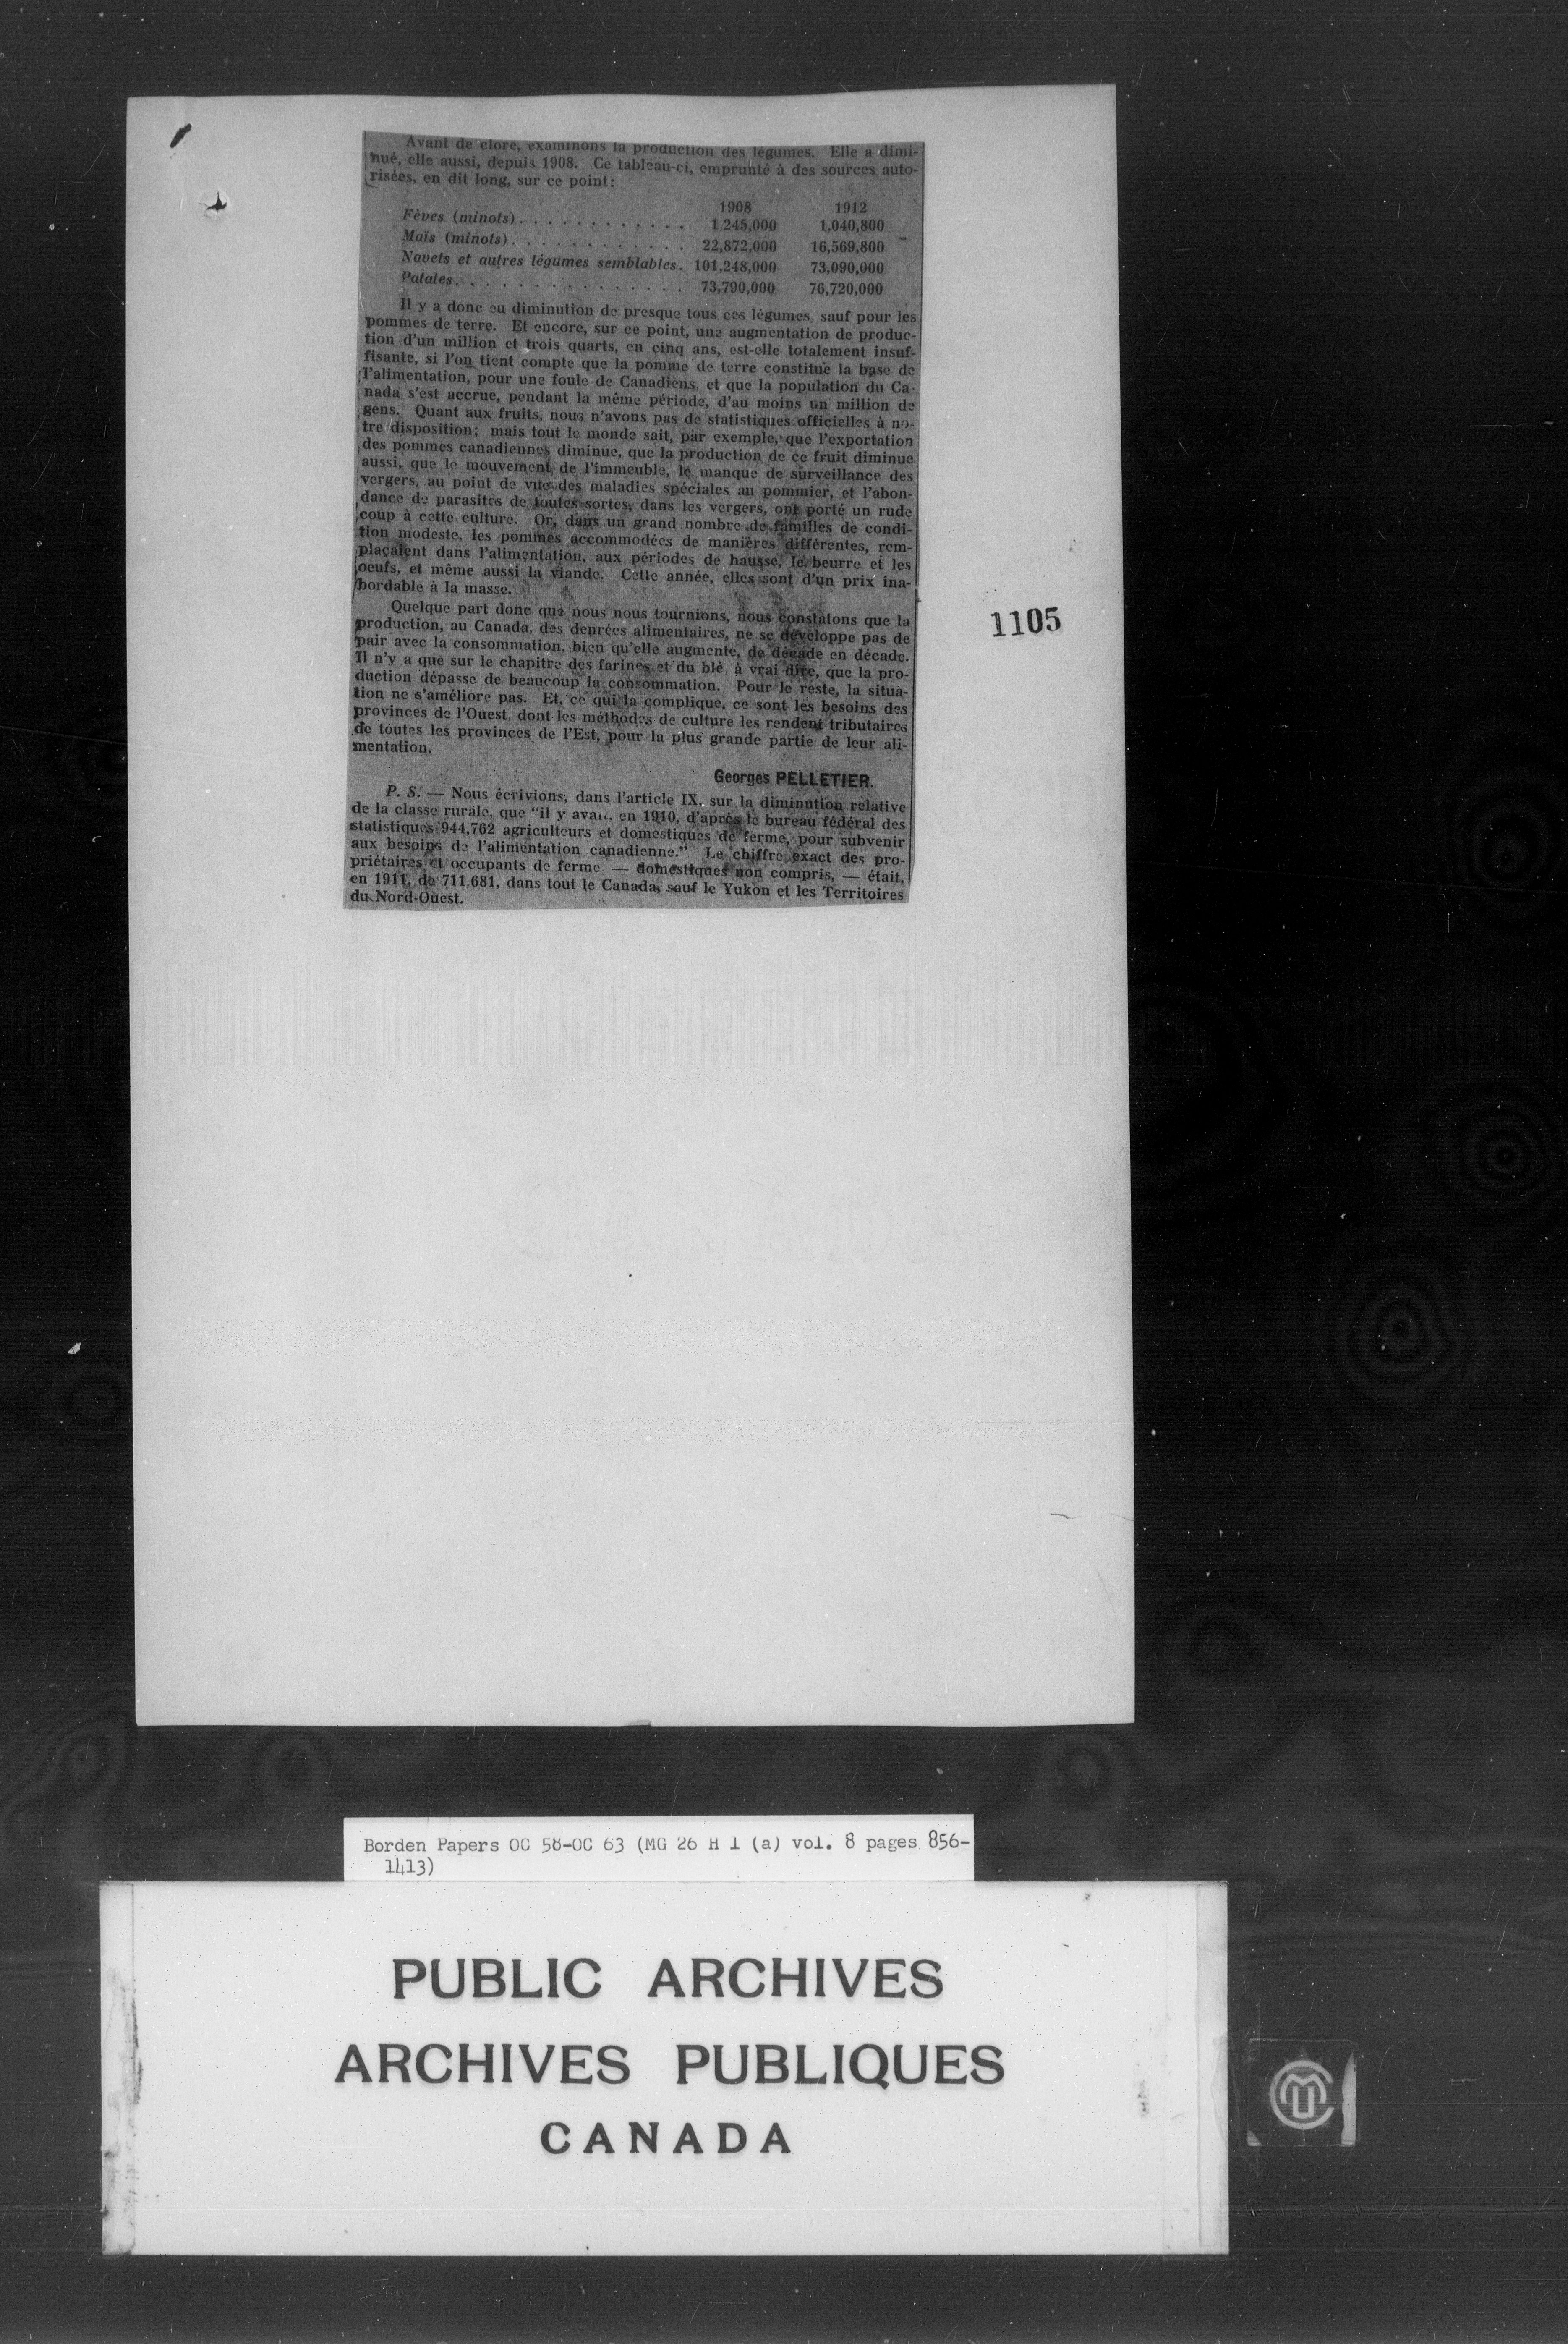 Avant de clore, examinons la production des légumes. Elle a dimi-
nué, elle aussi, depuis 1908. Ce tableau-ci, emprunté à des sources auto-
risées, en dit long, sur ce point:
1908 1912
Fèves (minots). . . . . . . . . . . . 1.245,000 1,040,800
Maïs (minots). . . . . . . . . . . . . 22,872,000 16,569,800
Navets et autres légumes semblables. 101,248,000 73,090,000
Patates. . . . . . . . . . . . . . . . 73,790,000 76,720,000
Il y a donc eu diminution de presque tous ces légumes, sauf pour les
pommes de terre. Et encore, sur ce point, une augmentation de produc-
tion d'un million et trois quarts, en cinq ans, est-elle totalement insuf-
fisante, si l'on tient compte que la pomme de terre constitue la base de
l'alimentation, pour une foule de Canadiens, et que la population du Ca-
nada s'est accrue, pendant la même période, d'au moins un million de
gens. Quant aux fruits, nous n'avons pas de statistiques officielles à no-
tre disposition; mais tout le monde sait, par exemple, que l'exportation
des pommes canadiennes diminue, que la production de ce fruit diminue
aussi, que le mouvement de l'immeuble, le manque de surveillance des
vergers, au point de vue des maladies spéciales au pommier, et l'abon-
dance de parasites de toutes sortes, dans les vergers, ont porté un rude
coup à cette culture. Or, dans un grand nombre de familles de condi-
tion modeste, les pommes accommodées de manières différentes, rem-
plaçaient dans l'alimentation, aux périodes de hausse, le beurre et les
oeufs, et même aussi la viande. Cette année, elles sont d'un prix ina-
bordable à la masse.
Quelque part donc que nous nous tournions, nous constatons que la
production, au Canada, des denrées alimentaires, ne se développe pas de
pair avec la consommation, bien qu'elle augmente, de décade en décade.
Il n'y a que sur le chapitre des farines et du blé, à vrai dire, que la pro-
duction dépasse de beaucoup la consommation. Pour le reste, la situa-
tion ne s'améliore pas. Et, ce qui la complique, ce sont les besoins des
provinces de l'Ouest, dont les méthodes de culture les rendent tributaires
de toutes les provinces de l'Est, pour la plus grande partie de leur ali-
mentation.
Georges PELLETIER.
P. S. — Nous écrivions, dans l'article IX, sur la diminution relative
de la classe rurale, que "il y avait, en 1910, d'après le bureau fédéral des
statistiques 944,762 agriculteurs et domestiques de ferme, pour subvenir
aux besoins de l'alimentation canadienne." Le chiffre exact des pro-
priétaires et occupants de ferme — domestiques non compris, — était,
en 1911, de 711.681, dans tout le Canada, sauf le Yukon et les Territoires
du Nord-Ouest.
1105
Borden Papers OC 58-OC 63 (MG 26 H 1 (a) vol. 8 pages 856-
1413)
PUBLIC ARCHIVES
ARCHIVES PUBLIQUES
CANADA